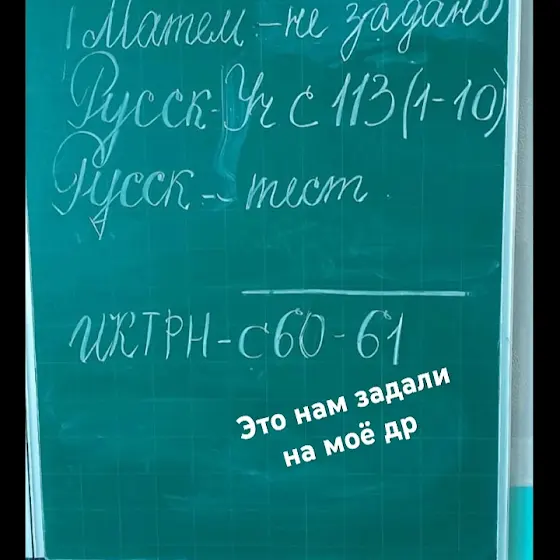 Матем - не задано
Русск - Уч с 113 (1-10)
Русск - тест
ИКТРН - с 60 - 61
Это нам задали
на моё др